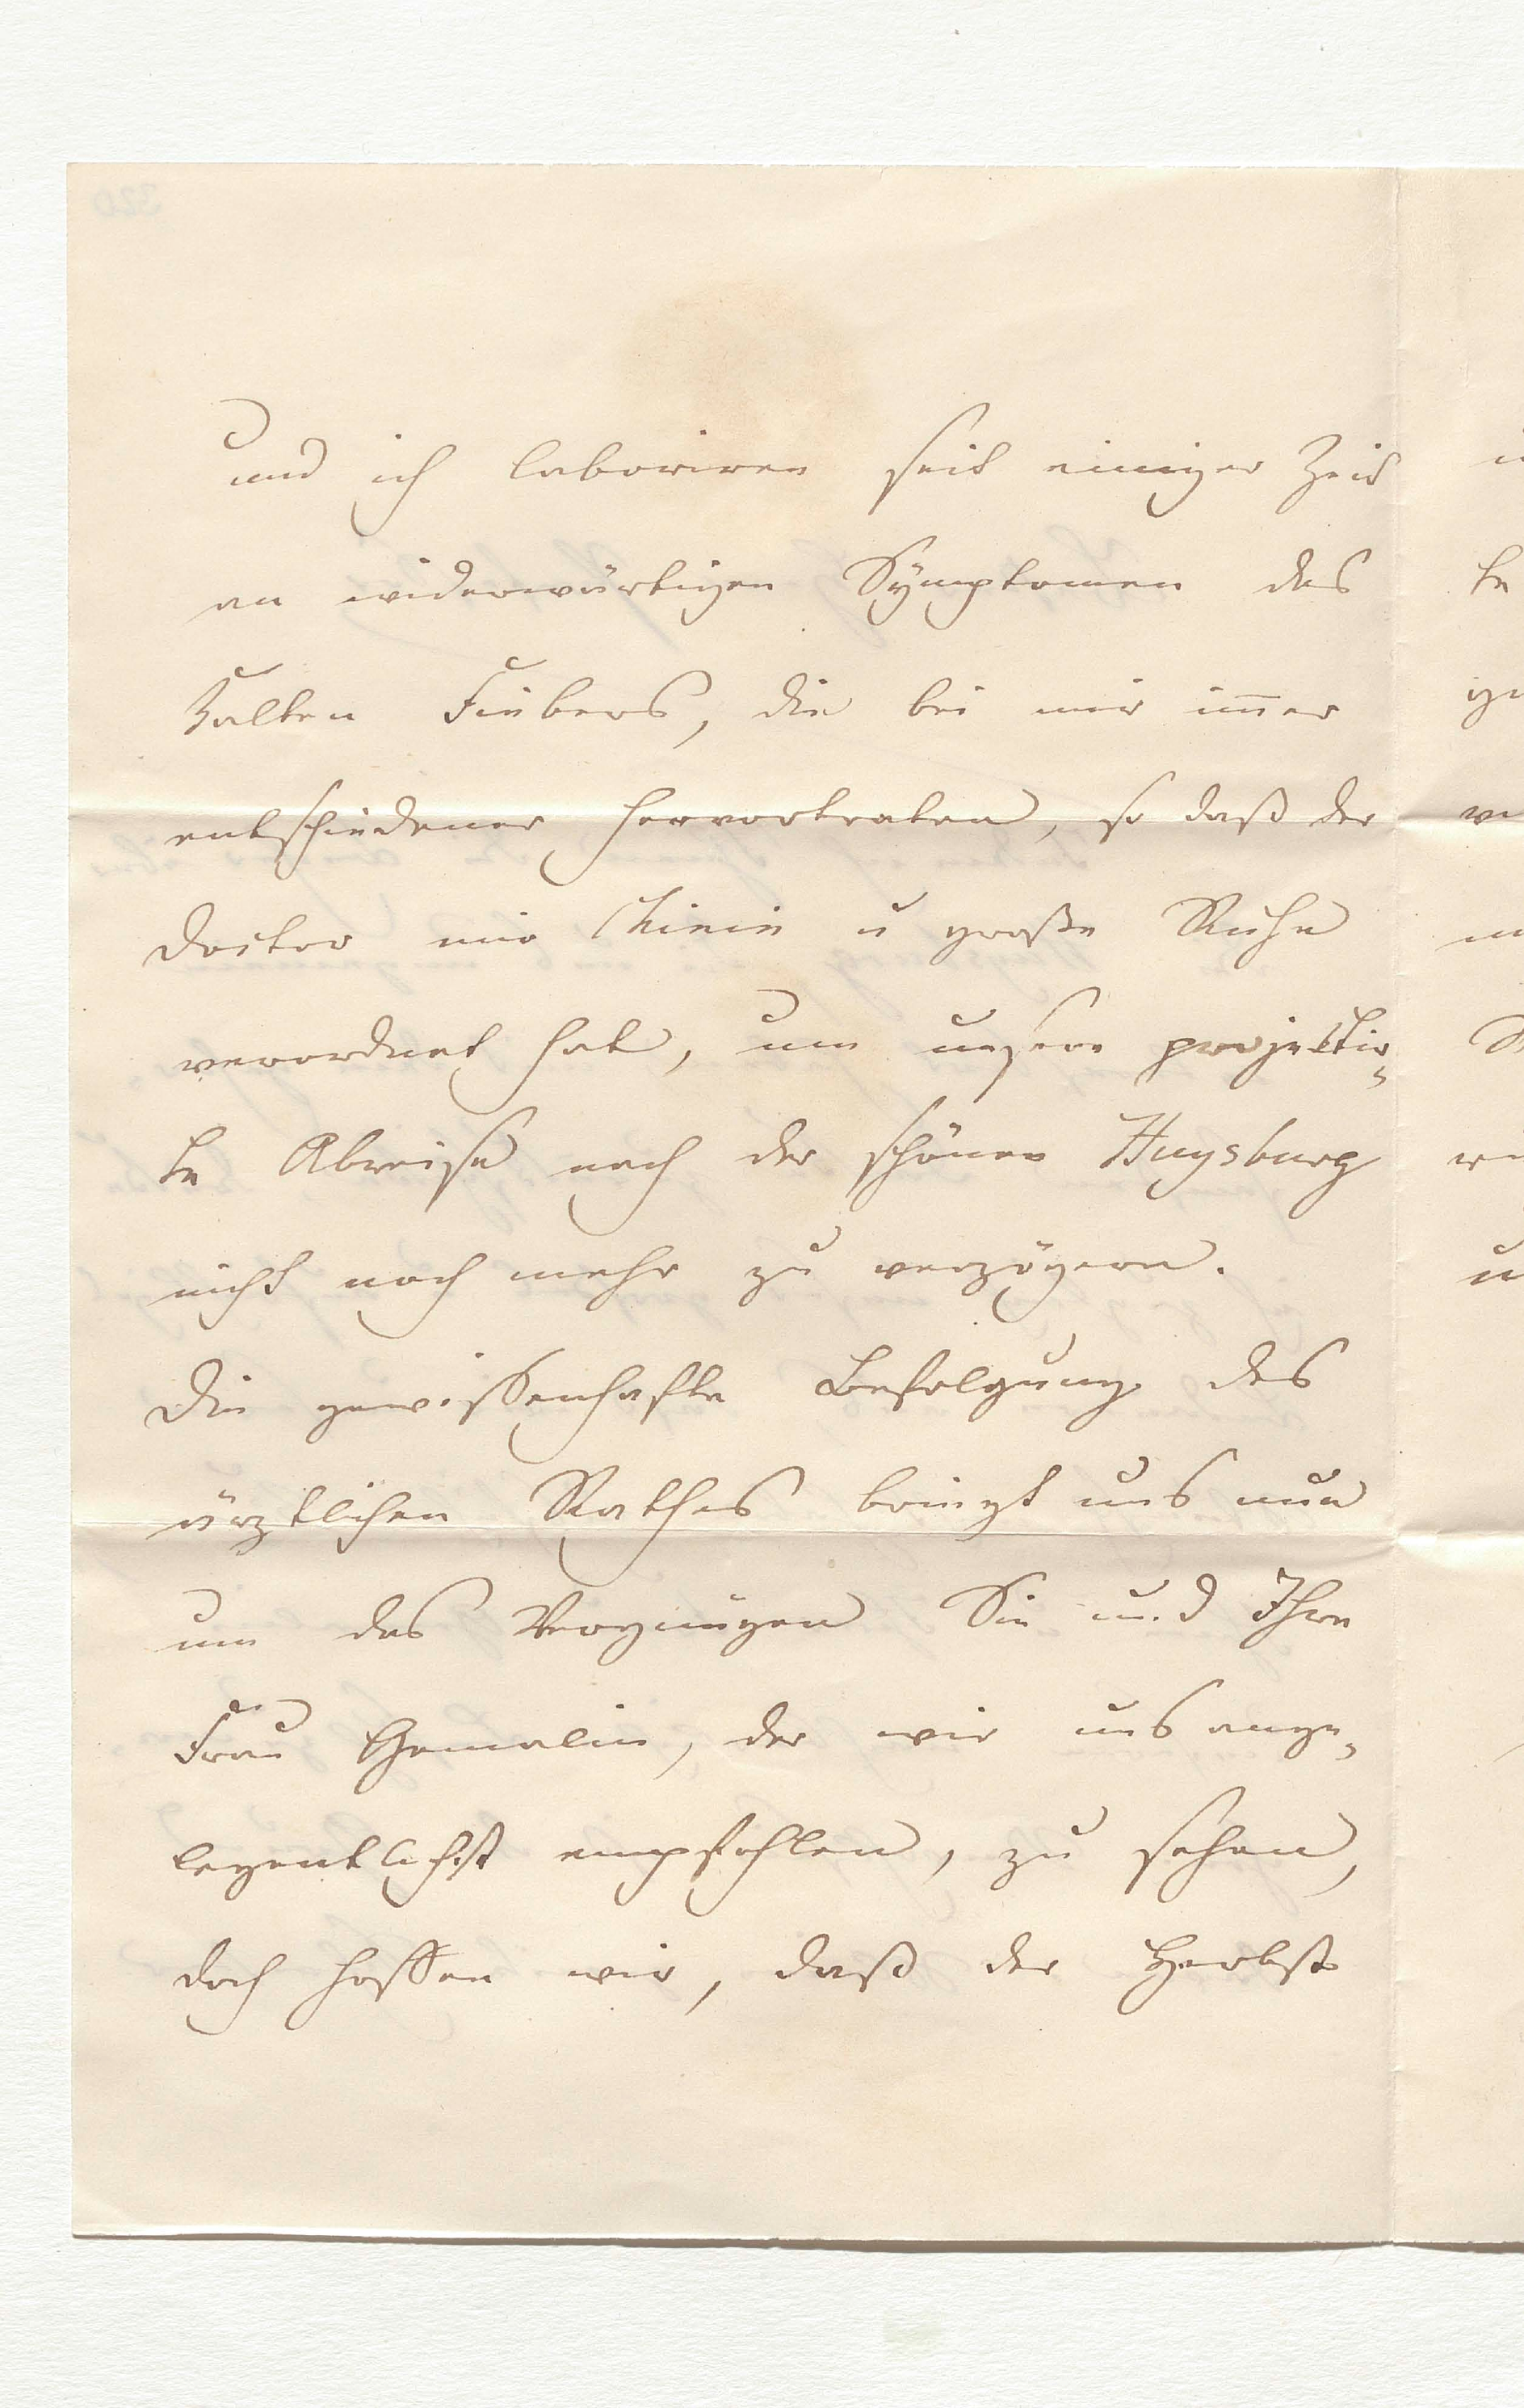 und ich laboriren seit einiger Zeit
an widerwärtigen Symptomen des
kalten Fiebers, die bei mir im̅er
entschiedener hervortraten, so daß der
Doctor mir Chinin u große Ruhe
verordnet hat, um unsere projektir-
te Abreise nach der schönen Huysburg
nicht noch mehr zu verzögern.
Die gewissenhafte Befolgung des
ärztlichen Rathes bringt uns nun
um das Vergnügen Sie und Ihre
Frau Gemalin, der wir uns ange-
legentlichst empfehlen, zu sehen,
doch hoffen wir, daß der Herbst